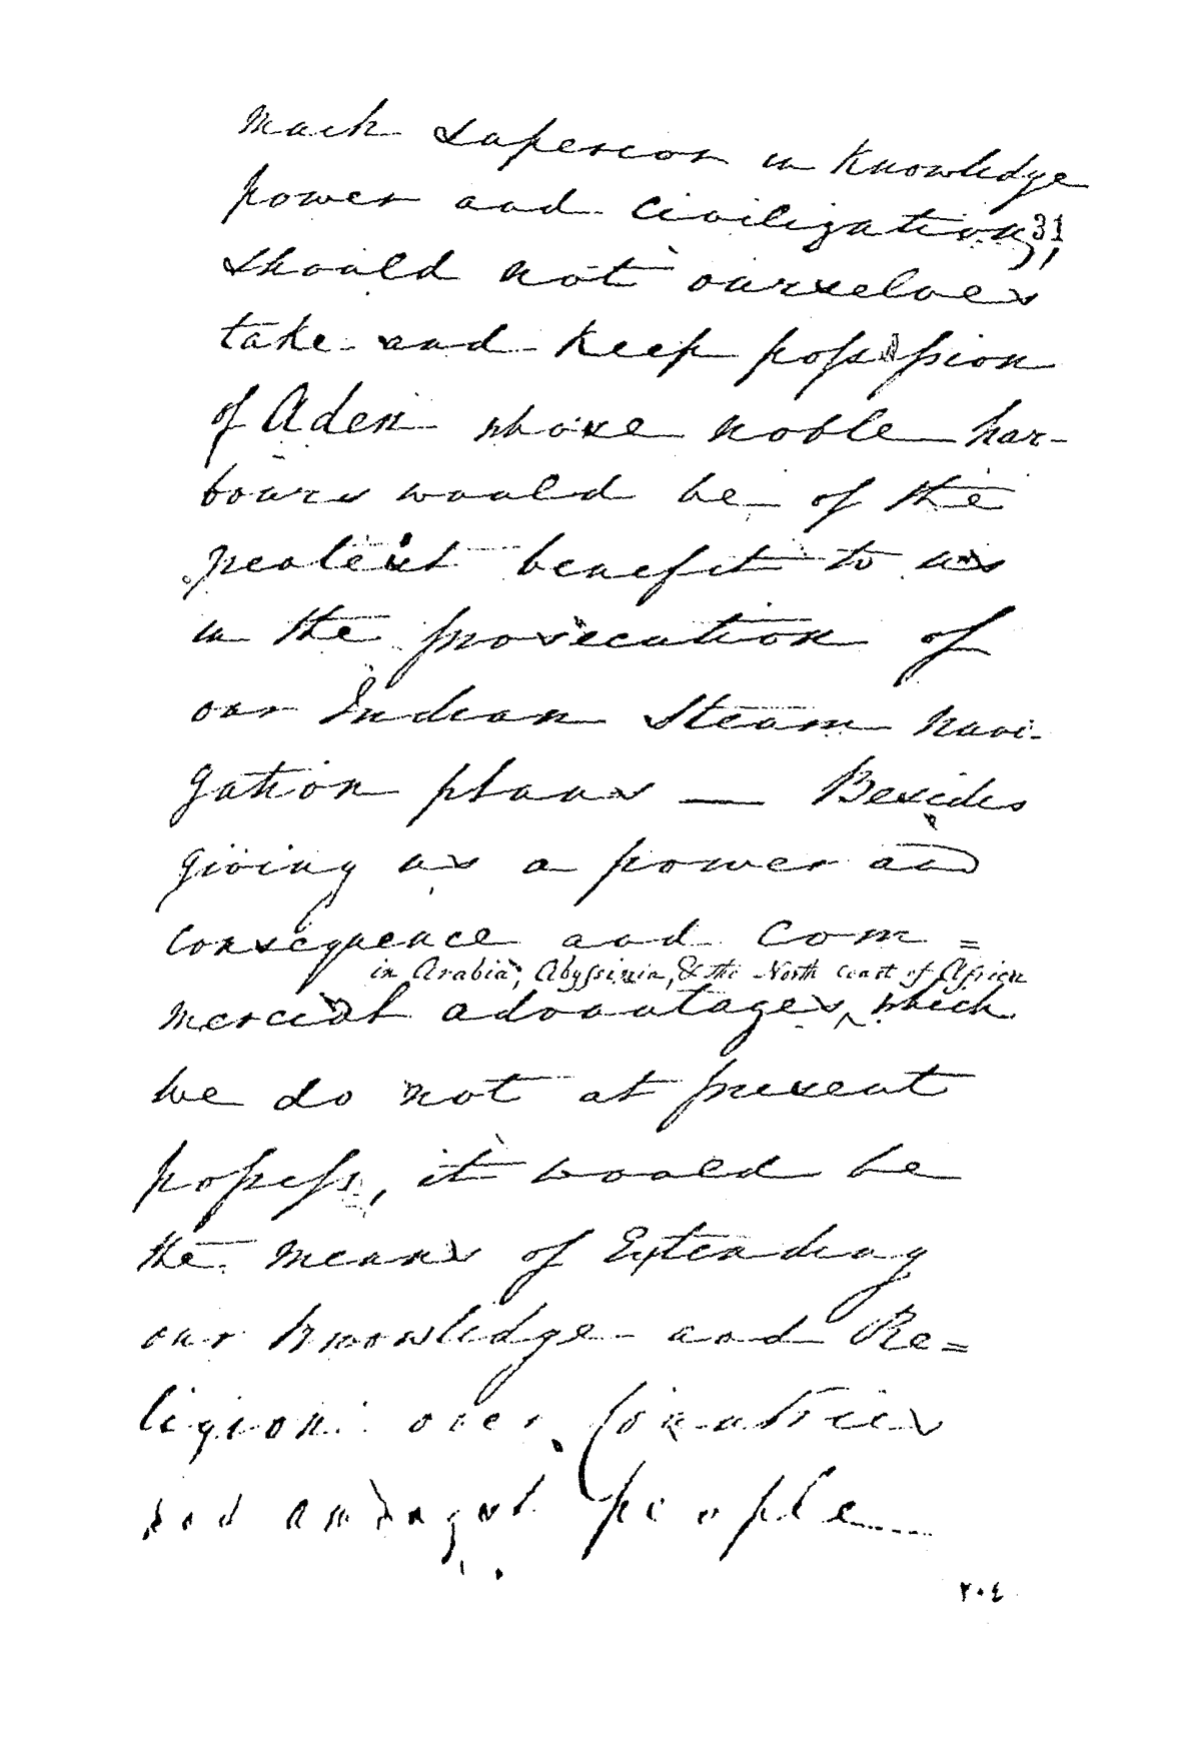 much superior in Knowledge
power and civilization,
31
should not ourselves
take and Keep possession
of Aden whose noble har-
bours would be of the
greatest benefit to us
in the prosecution of
our Indian Steam navi-
gation plans — Besides
giving us a power and
consequence and Com=
in Arabia, Abyssinia, & the North coast of Africa
mercial advantages, which
we do not at present
possess, it would be
the means of Extending
our knowledge and Re=
ligion over Countries
and amongst people
٢٠٤